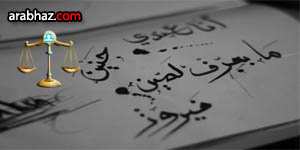 arabhaz.com
أنا عندي
حنين
ما بعرف لمين
فيروز